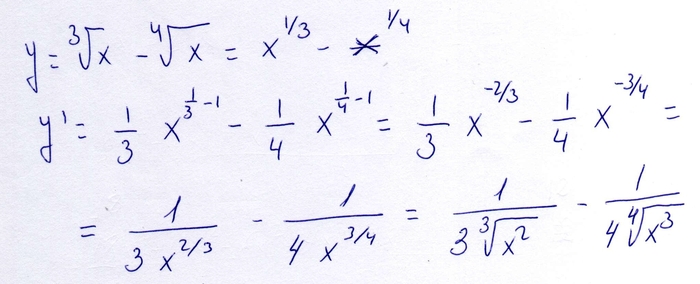 y = ∛x - ∜x = x^{1/3} - x^{1/4}
y' = \frac{1}{3} x^{\frac{1}{3}-1} - \frac{1}{4} x^{\frac{1}{4}-1} = \frac{1}{3} x^{-2/3} - \frac{1}{4} x^{-3/4} =
= \frac{1}{3 x^{2/3}} - \frac{1}{4 x^{3/4}} = \frac{1}{3 ∛{x^2}} - \frac{1}{4 ∜{x^3}}